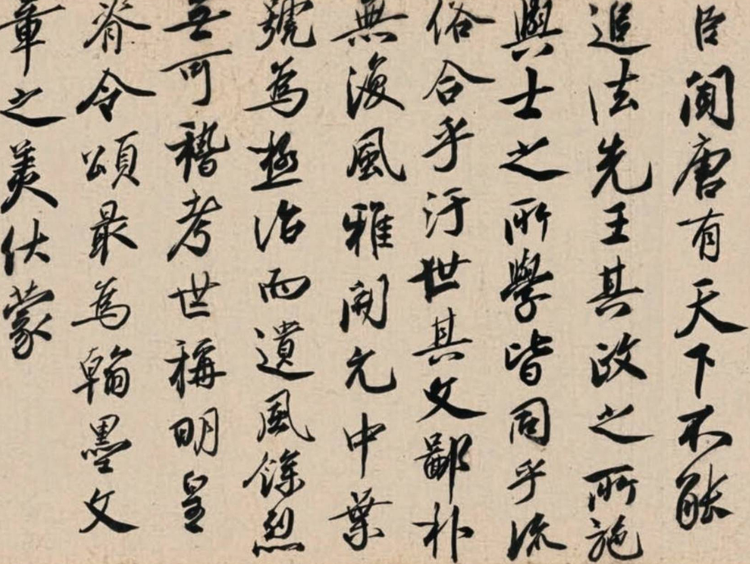 臣聞唐有天下不能
追法先王其政之所施
與士之所學皆同乎流
俗合乎汙世其文鄙朴
無復風雅開元中葉
號為極治而遺風餘烈
無可稽考世稱明皇
脊令頌最為翰墨文
章之美伏蒙